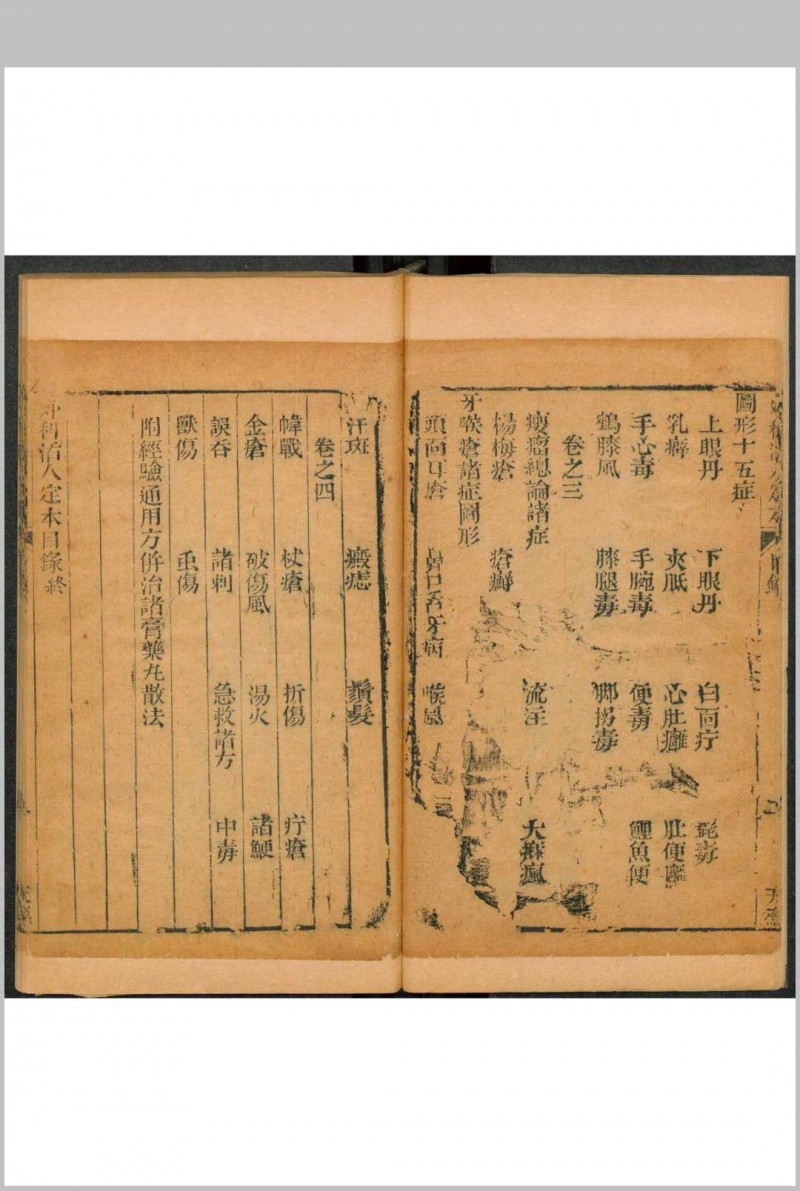 圖形十五症
上眼丹 下眼丹 白面疔 髭毒
乳癖 夾胝 心肚癰 肚便癰
手心毒 手腕毒 便毒 鯉魚便
鶴膝風 膝腿毒 脚拐毒
卷之三
瘿瘤總論諸症 流注 大痲瘋
楊梅瘡 瘡癬
牙喉瘡諸症圖形
頭面耳瘡 鼻口舌牙病 喉
汗斑 癜痣 鬚髮
卷之四
幃戰 杖瘡 折傷 疔瘡
金瘡 破傷風 湯火 諸鯁
誤吞 諸刺 急救諸方 中毒
獸傷 虫傷
附經驗通用方併治諸膏藥丸散法
外科活人定本目錄終